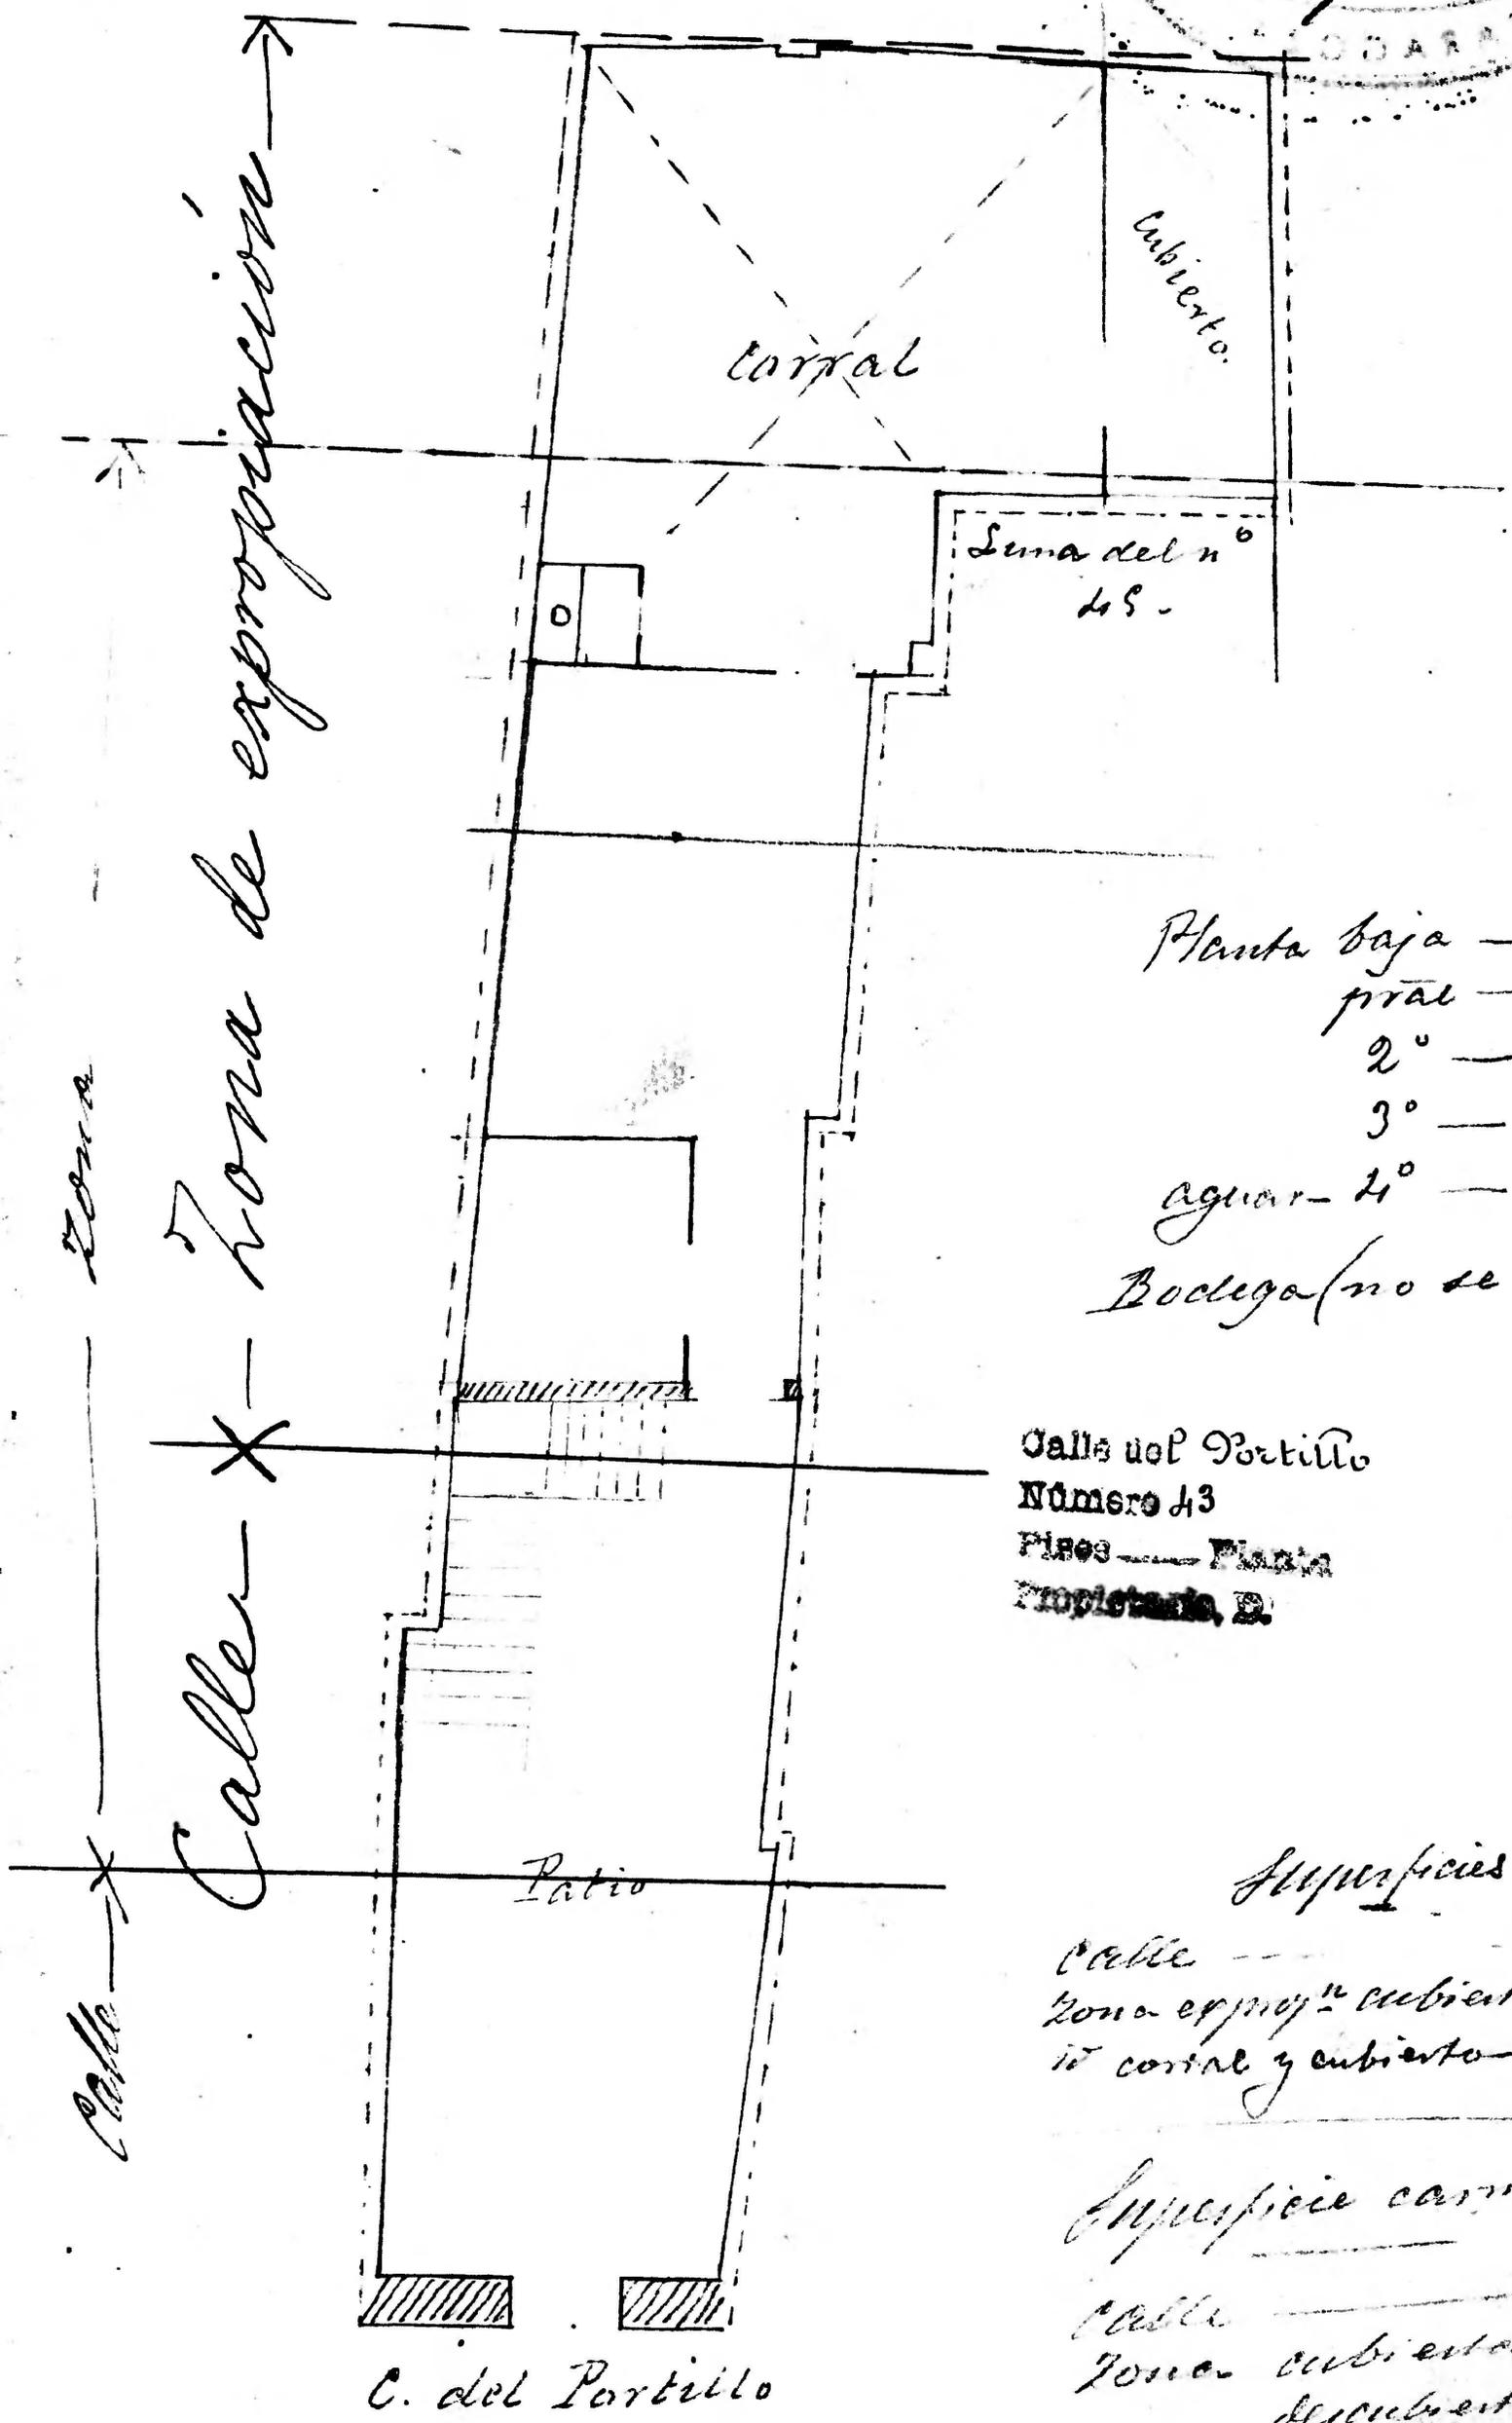 Calle — Zona de expropiación
Calle — zona
corral
Cubierto.
Luna del nº
45 -
Planta baja —
pral —
2º —
3º —
aguar- 4º —
Bodega (no se
Calle del Portillo
Número 43
Pisos —— Planta
Propietario, D.
Patio
Superficies
Calle --
Zona expropn cubiert
corral y cubierto
Superficie
Calle ——
Zona cubierta
descubiert
C. del Portillo